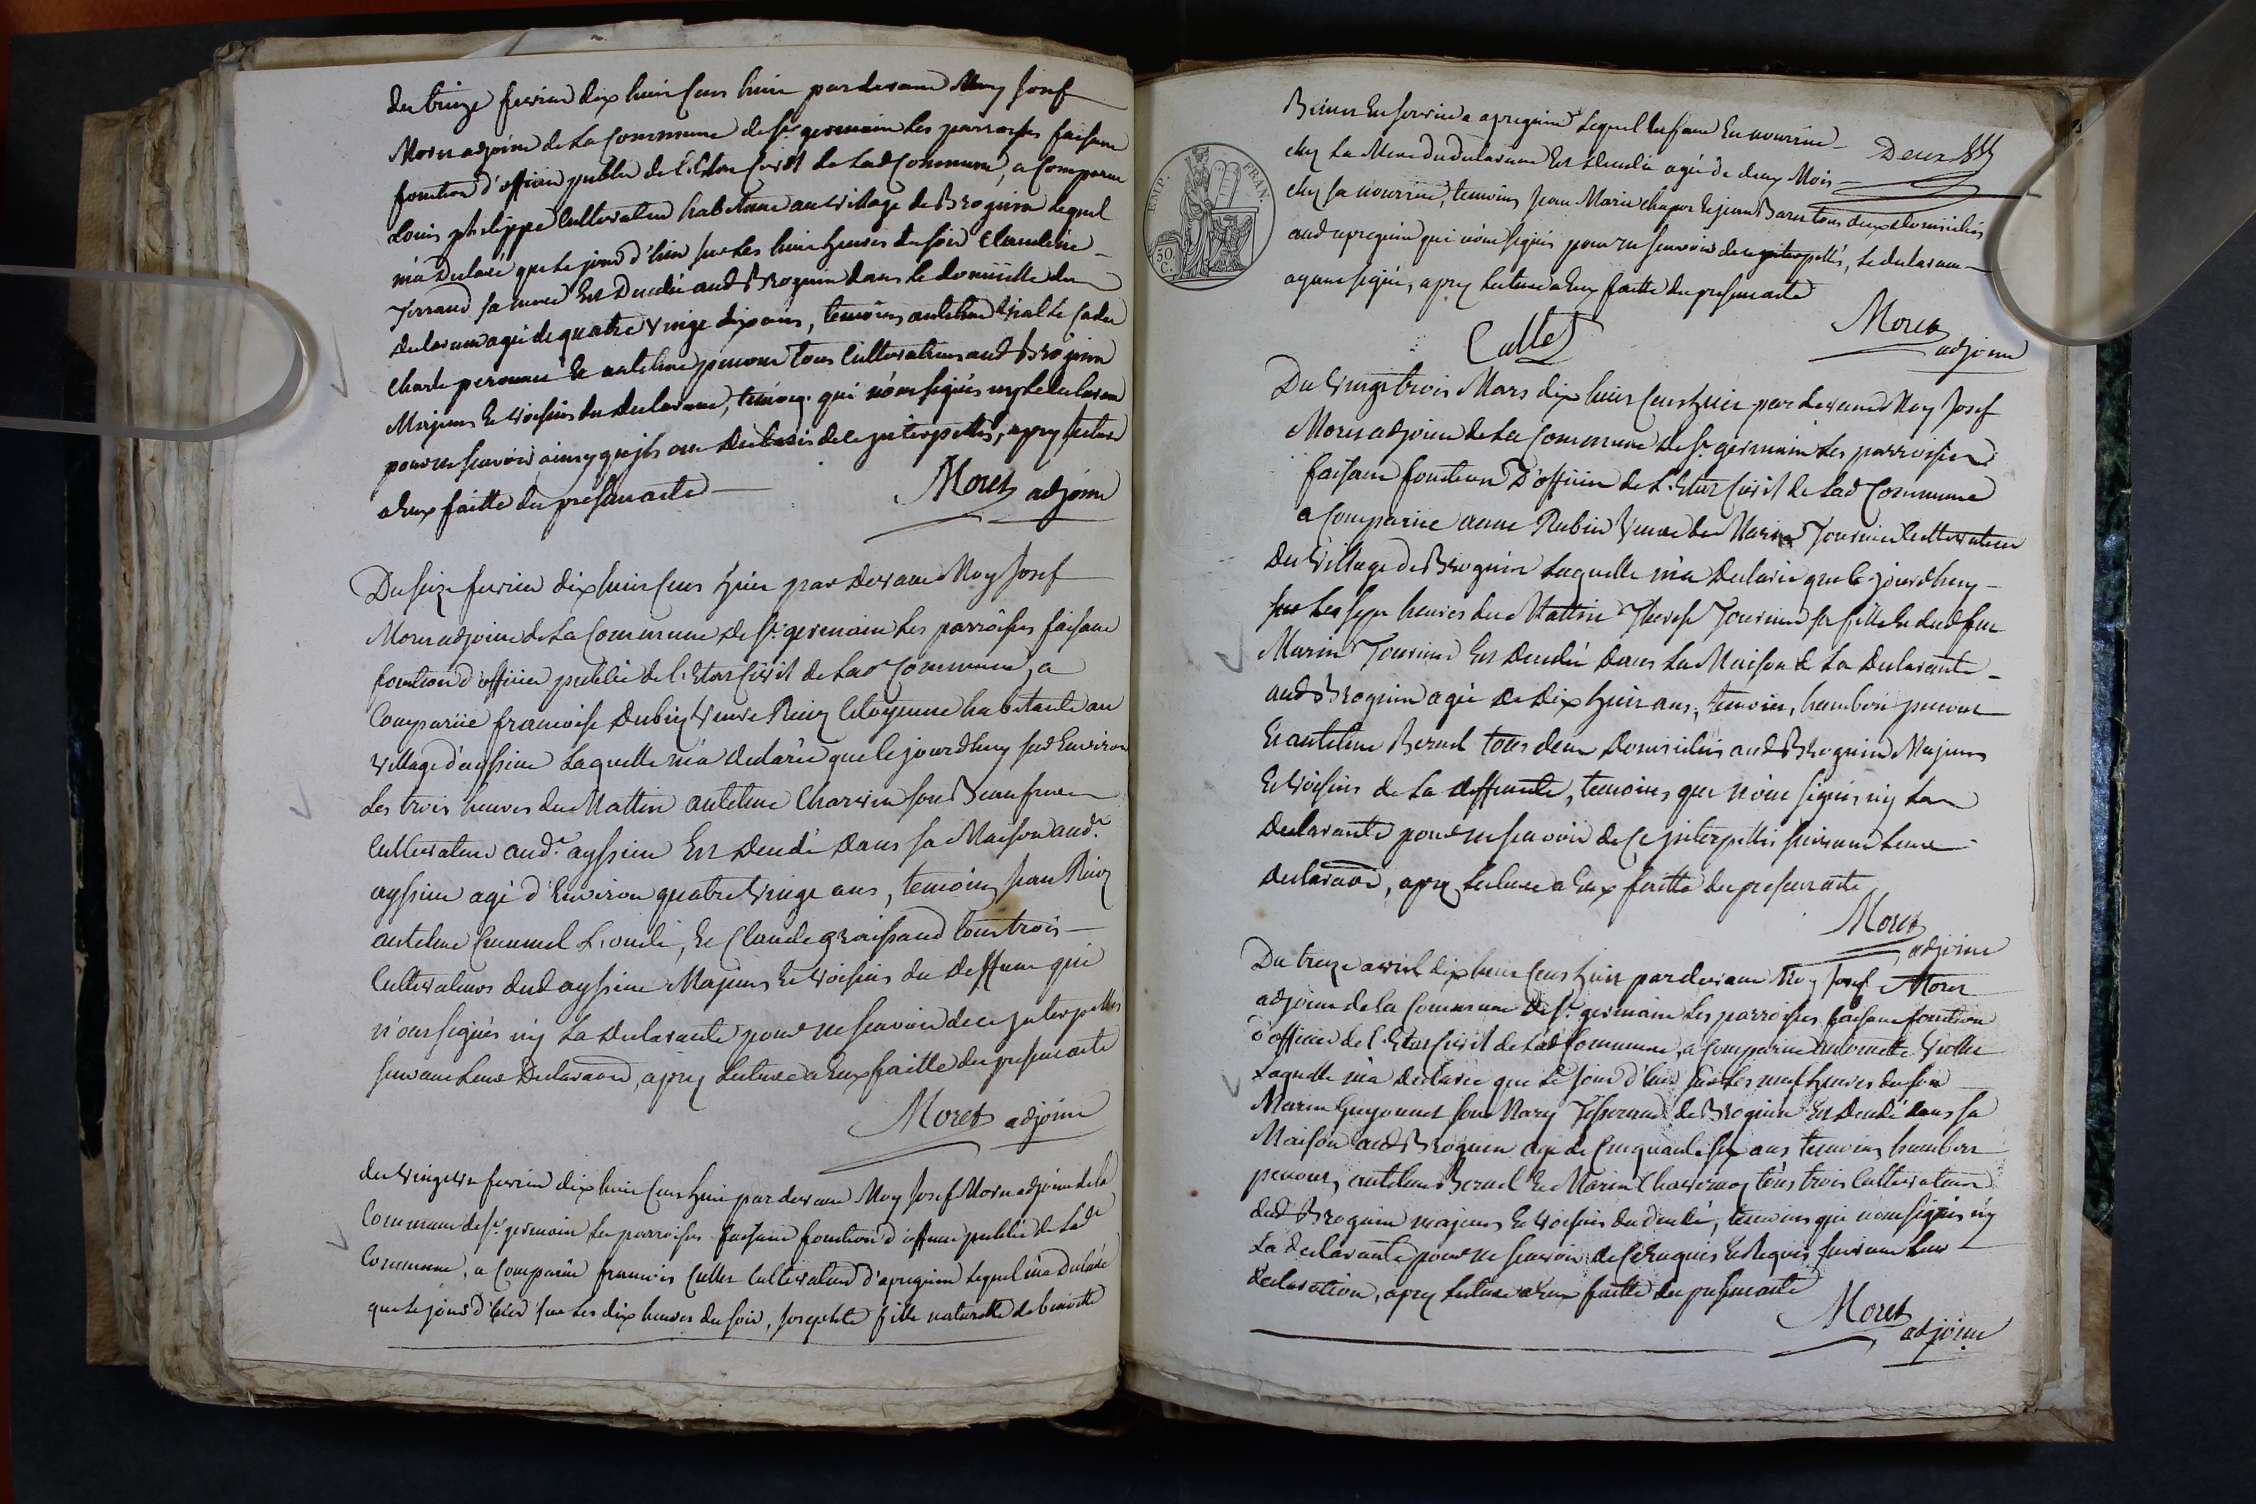 du treize fevrier dix huit cens huit par devant Moy Josef
Moret adjoint de la Commune de St germain les parroisses faisant
fonction d'officier public de l'Etat Civil de lad Commune, a Comparu
Louis philippe Cultivateur habitant au village de Brognin lequel
m'a Declaré que le jour d'hier sur les huit heures du soir Claudine
Terrand sa mere Est Decedée aud Brognin dans le domicille du
declarant agée de quatre vingt dix ans, temoins antelme
Charle et antelme penout tous Cultivateurs aud Brognin
Majeurs Et voisins du declarant, temoins qui n'ont signés ny le declarant
pour ne sçavoir ainsy qu'ils ont declarés de ce interpellés, apres lecture
a Eux faitte du present acte
Moret adjoint
Du seize fevrier dix huit cens huit par devant Moy Josef
Moret adjoint de la Commune de St germain les parroisses faisant
fonction d'officier public de l'Etat Civil de lad Commune, a
Comparüe francoise Dubiez veuve Citoyenne habitante au
village d'ayssieu laquelle m'a declarée que le jourdhuy sur Environ
les trois heures du Mattin antelme Charvin son Beaufrere
Cultivateur aud. ayssieu Est decedé dans sa Maison aud.
ayssieu agé d'Environ quatre vingt ans, temoins Jean
antelme L'oncle, Et Claude graissand tous trois
Cultivateurs dud ayssieu Majeurs Et voisins du deffunt qui
n'ont signés ny la declarante pour ne sçavoir de ce interpellés
suivant leur Declaration, apres lecture a Eux faitte du present acte
Moret adjoint
du vingt un fevrier dix huit cens huit par devant Moy Josef Moret adjoint de la
Commune de St germain les parroisses faisant fonction d'officier public de lad
Commune, a Comparu francois Cullet Cultivateur d'apregnin lequel m'a Declaré
que le jour d'hier sur les dix heures du soir, Josephte fille naturelle de benoitte
en service a apregnin lequel Enfant En nourrice
chez la Mere du declarant Est decedée agée de deux Mois
chez sa nourrice, temoins Jean Marie et jean tous deux domiciliés
aud apregnin qui n'ont signés pour ne sçavoir de ce interpellés, le declarant
ayant signé, apres lecture a Eux faitte du present acte
Deux
EMP. FRAN.
50. C.
Cullet
Moret
adjoint
Du vingt trois Mars dix huit cens huit par devant Moy Josef
Moret adjoint de la Commune de St germain les parroisses
faisant fonction D'officier de L'Etat Civil de lad Commune
a Comparüe anne Rubin veuve de Marin Tournier Cultivateur
du village de Brognin laquelle m'a declarée que le jourdhuy
sur les sept heures du Mattin Therese Tournier sa fille et dud feu
Marin Tournier Est decedée dans la Maison de la declarante
aud Brognin agée de dix huit ans, temoins, humbert penout
Et antelme Bernel tous deux domiciliés aud Brognin Majeurs
Et voisins de la deffunte, temoins qui n'ont signés ny la
declarante pour ne sçavoir de ce interpellés suivant leur
declaration, apres lecture a Eux faitte du present acte
Moret
adjoint
Du treize avril dix huit cens huit par devant Moy Josef Moret
adjoint de la Commune de St germain les parroisses faisant fonction
d'officier de l'Etat Civil de lad Commune, a Comparüe antoinette
laquelle m'a declarée que le jour d'hier sur les neuf heures du soir
Marin Guyonnet son Mary Tisserand de Brognin Est decedé dans sa
Maison aud Brognin agé de Cinquante six ans temoins humbert
penout, antelme Bernel Et Marin tous trois Cultivateurs
dud Brognin majeurs Et voisins du decedé, temoins qui n'ont signés ny
la declarante pour ne sçavoir de ce Enquis Et Requis suivant leur
declaration, apres lecture a Eux faitte du present acte
Moret
adjoint